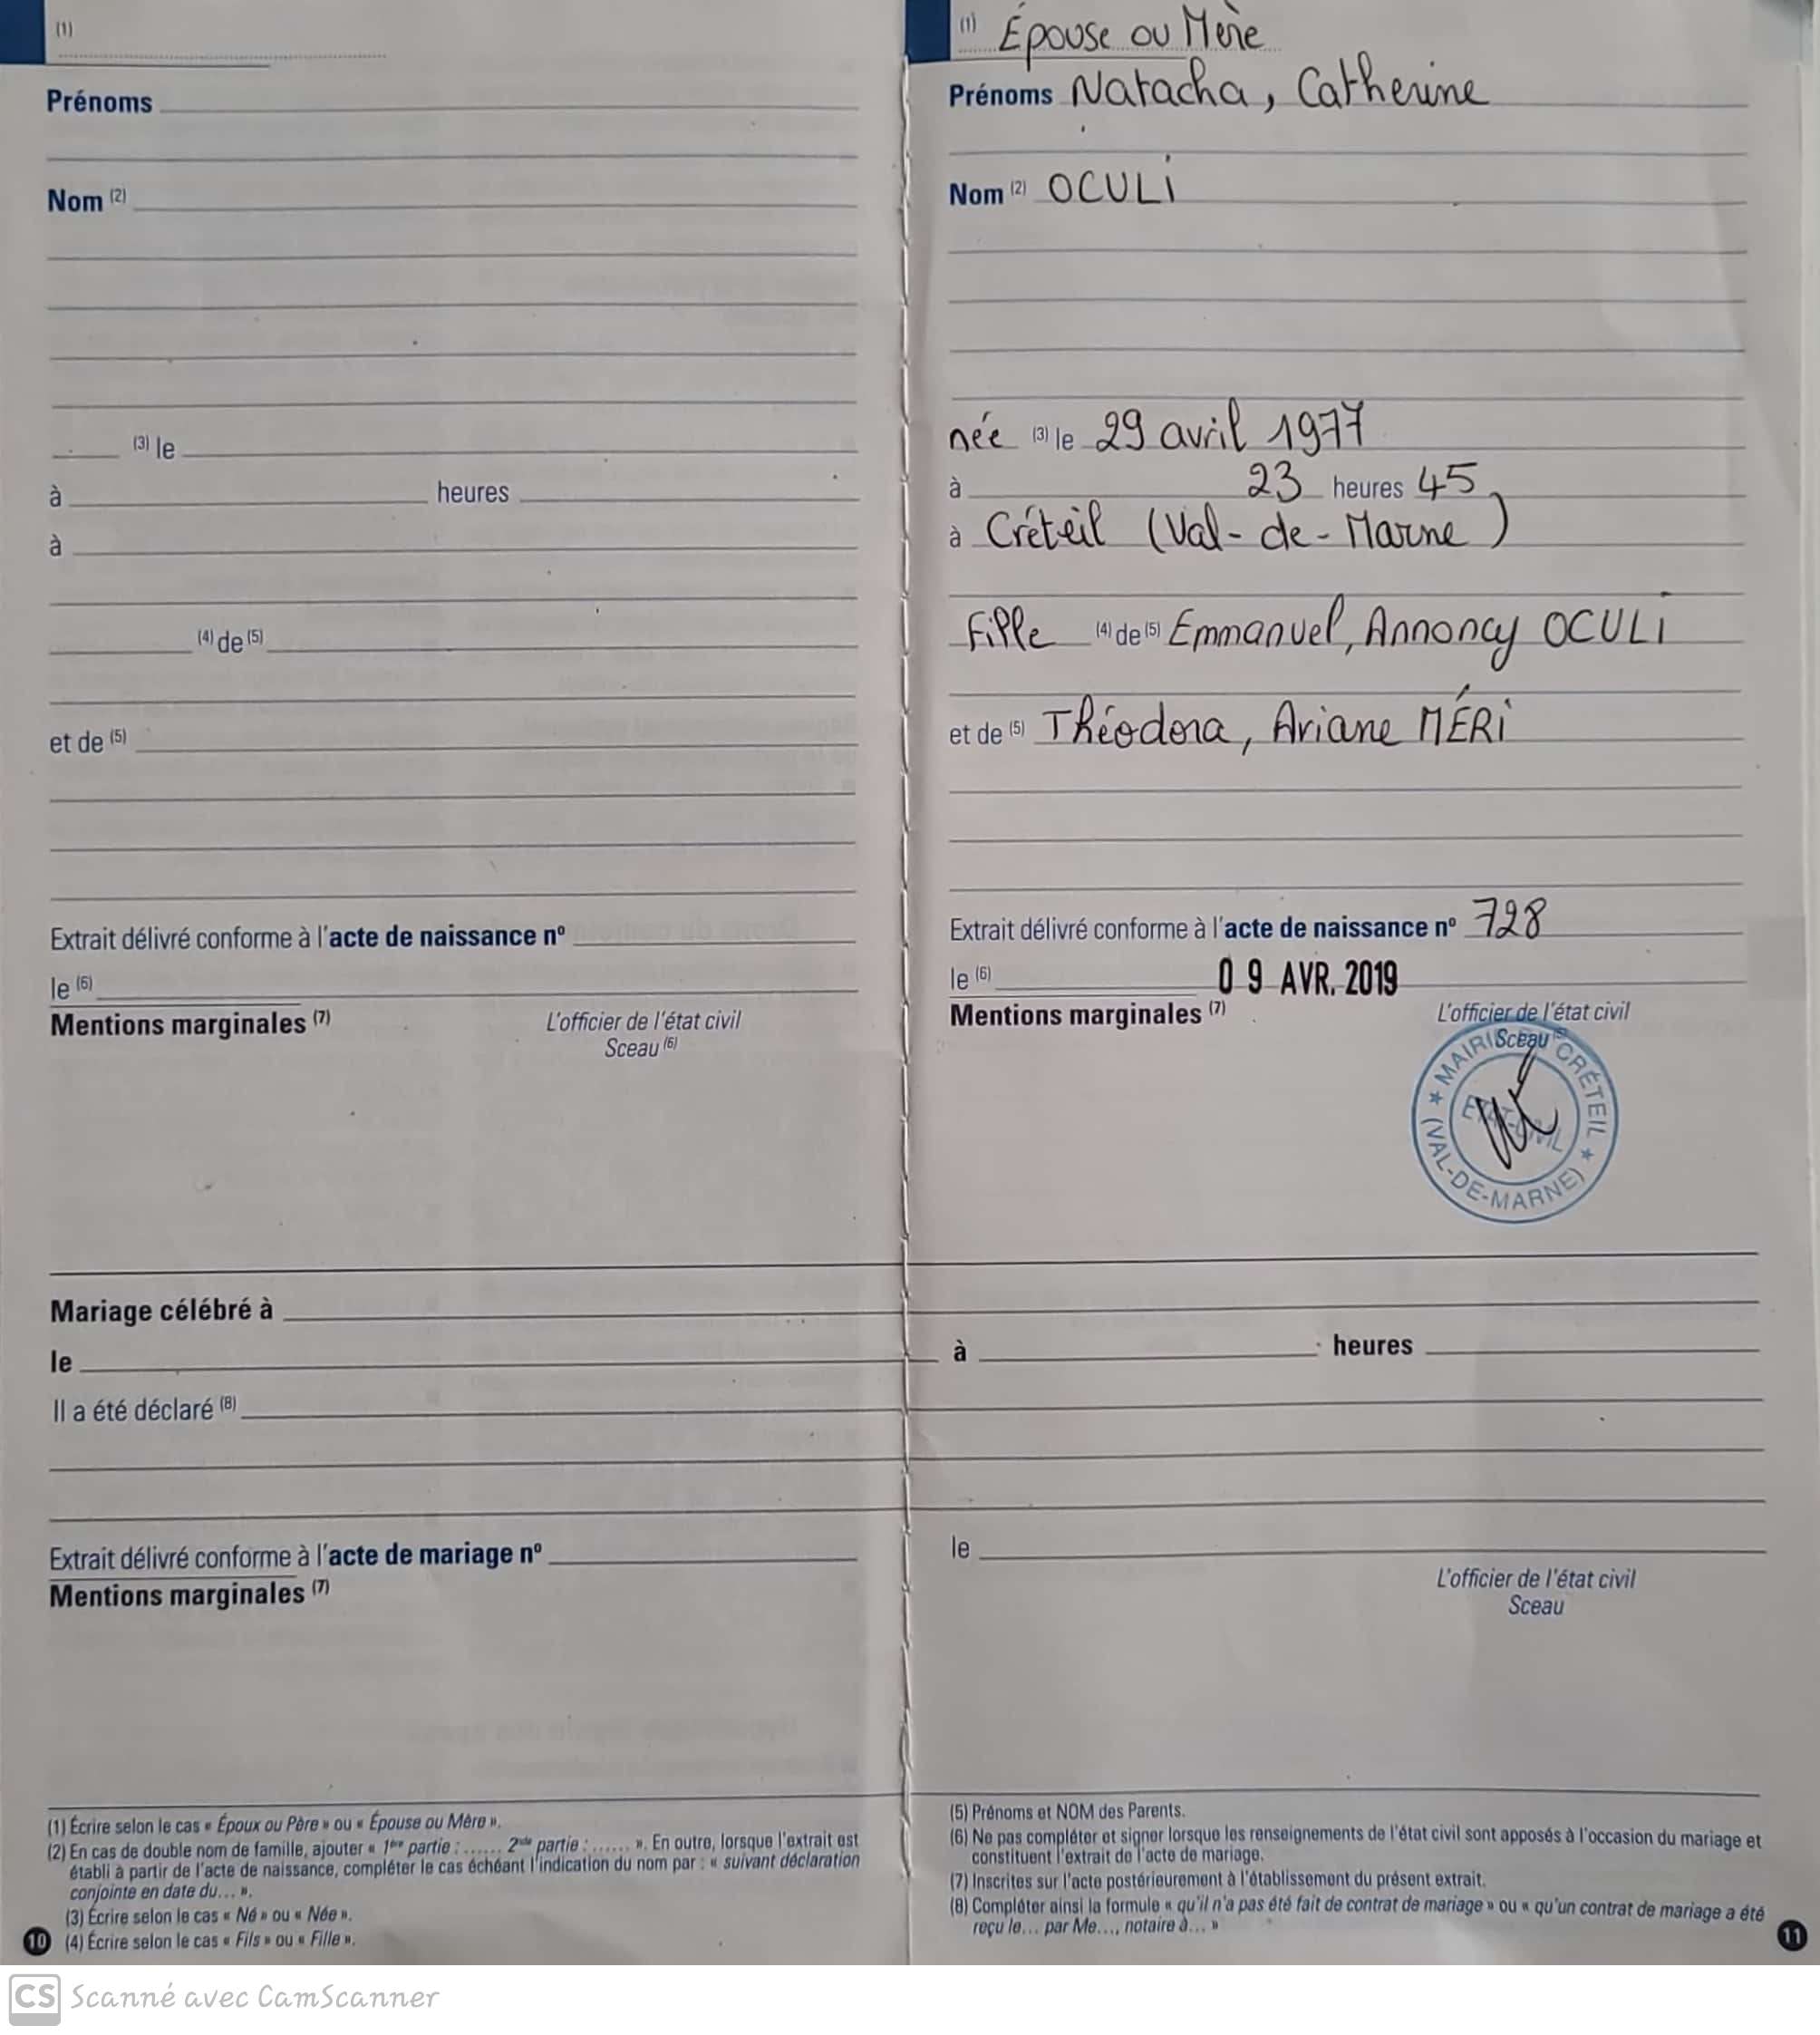 (1)
Prénoms
Nom (2)
(3) le
à heures
à
(4) de (5)
et de (5)
Extrait délivré conforme à l'acte de naissance nº
le (6)
Mentions marginales (7)
L'officier de l'état civil
Sceau (6)
(1) Épouse ou Mère
Prénoms Natacha, Catherine
Nom (2) OCULI
née (3) le 29 avril 1977
à 23 heures 45
à Créteil (Val-de-Marne)
Fille (4) de (5) Emmanuel, Annoncy OCULI
et de (5) Théodora, Ariane MÉRI
Extrait délivré conforme à l'acte de naissance nº 728
le (6) 09 AVR. 2019
Mentions marginales (7)
L'officier de l'état civil
Sceau
MAIRIE CRÉTEIL
ETAT-CIVIL
(VAL-DE-MARNE)
Mariage célébré à
le à heures
Il a été déclaré (8)
Extrait délivré conforme à l'acte de mariage nº le
Mentions marginales (7)
L'officier de l'état civil
Sceau
(1) Écrire selon le cas « Époux ou Père » ou « Épouse ou Mère ».
(2) En cas de double nom de famille, ajouter « 1ère partie : ...... 2nde partie : ...... ». En outre, lorsque l'extrait est
établi à partir de l'acte de naissance, compléter le cas échéant l'indication du nom par : « suivant déclaration
conjointe en date du... ».
(3) Écrire selon le cas « Né » ou « Née ».
10 (4) Écrire selon le cas « Fils » ou « Fille ».
(5) Prénoms et NOM des Parents.
(6) Ne pas compléter et signer lorsque les renseignements de l'état civil sont apposés à l'occasion du mariage et
constituent l'extrait de l'acte de mariage.
(7) Inscrites sur l'acte postérieurement à l'établissement du présent extrait.
(8) Compléter ainsi la formule « qu'il n'a pas été fait de contrat de mariage » ou « qu'un contrat de mariage a été
reçu le... par Me..., notaire à... »
11
CS Scanné avec CamScanner